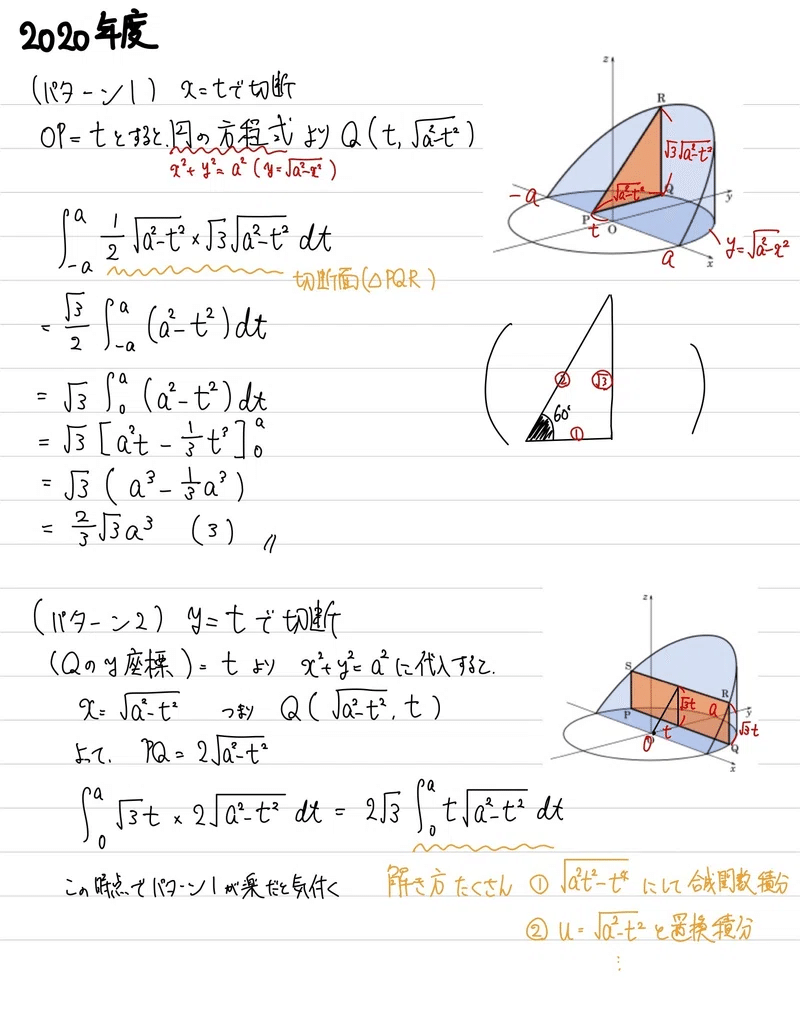 2020年度
(パターン1) x=tで切断
OP=tとすると、円の方程式より Q(t, √a²-t²)
x²+y²=a² (y=√a²-x²)
∫_{-a}^{a} 1/2 √a²-t² × √3 √a²-t² dt
切断面(△PQR)
= √3/2 ∫_{-a}^{a} (a²-t²) dt
= √3 ∫_{0}^{a} (a²-t²) dt
= √3 [a²t - 1/3 t³]_{0}^{a}
= √3 (a³ - 1/3 a³)
= 2/3 √3 a³ (3) //
z
R
√3√a²-t²
√a²-t²
Q
y
-a
P
t
O
a
x
y=√a²-x²
② √3
60°
①
(パターン2) y=tで切断
(Qのy座標)=t より x²+y²=a²に代入すると、
x=√a²-t² つまり Q(√a²-t², t)
よって、PQ=2√a²-t²
∫_{0}^{a} √3t × 2√a²-t² dt = 2√3 ∫_{0}^{a} t√a²-t² dt
この時点でパターン1が楽だと気付く
解き方たくさん ① √a²t²-t⁴ にして合成関数積分
② u=√a²-t² と置換積分
⋮
z
S
R
√3t
a
y
P
t
√3t
O
Q
x